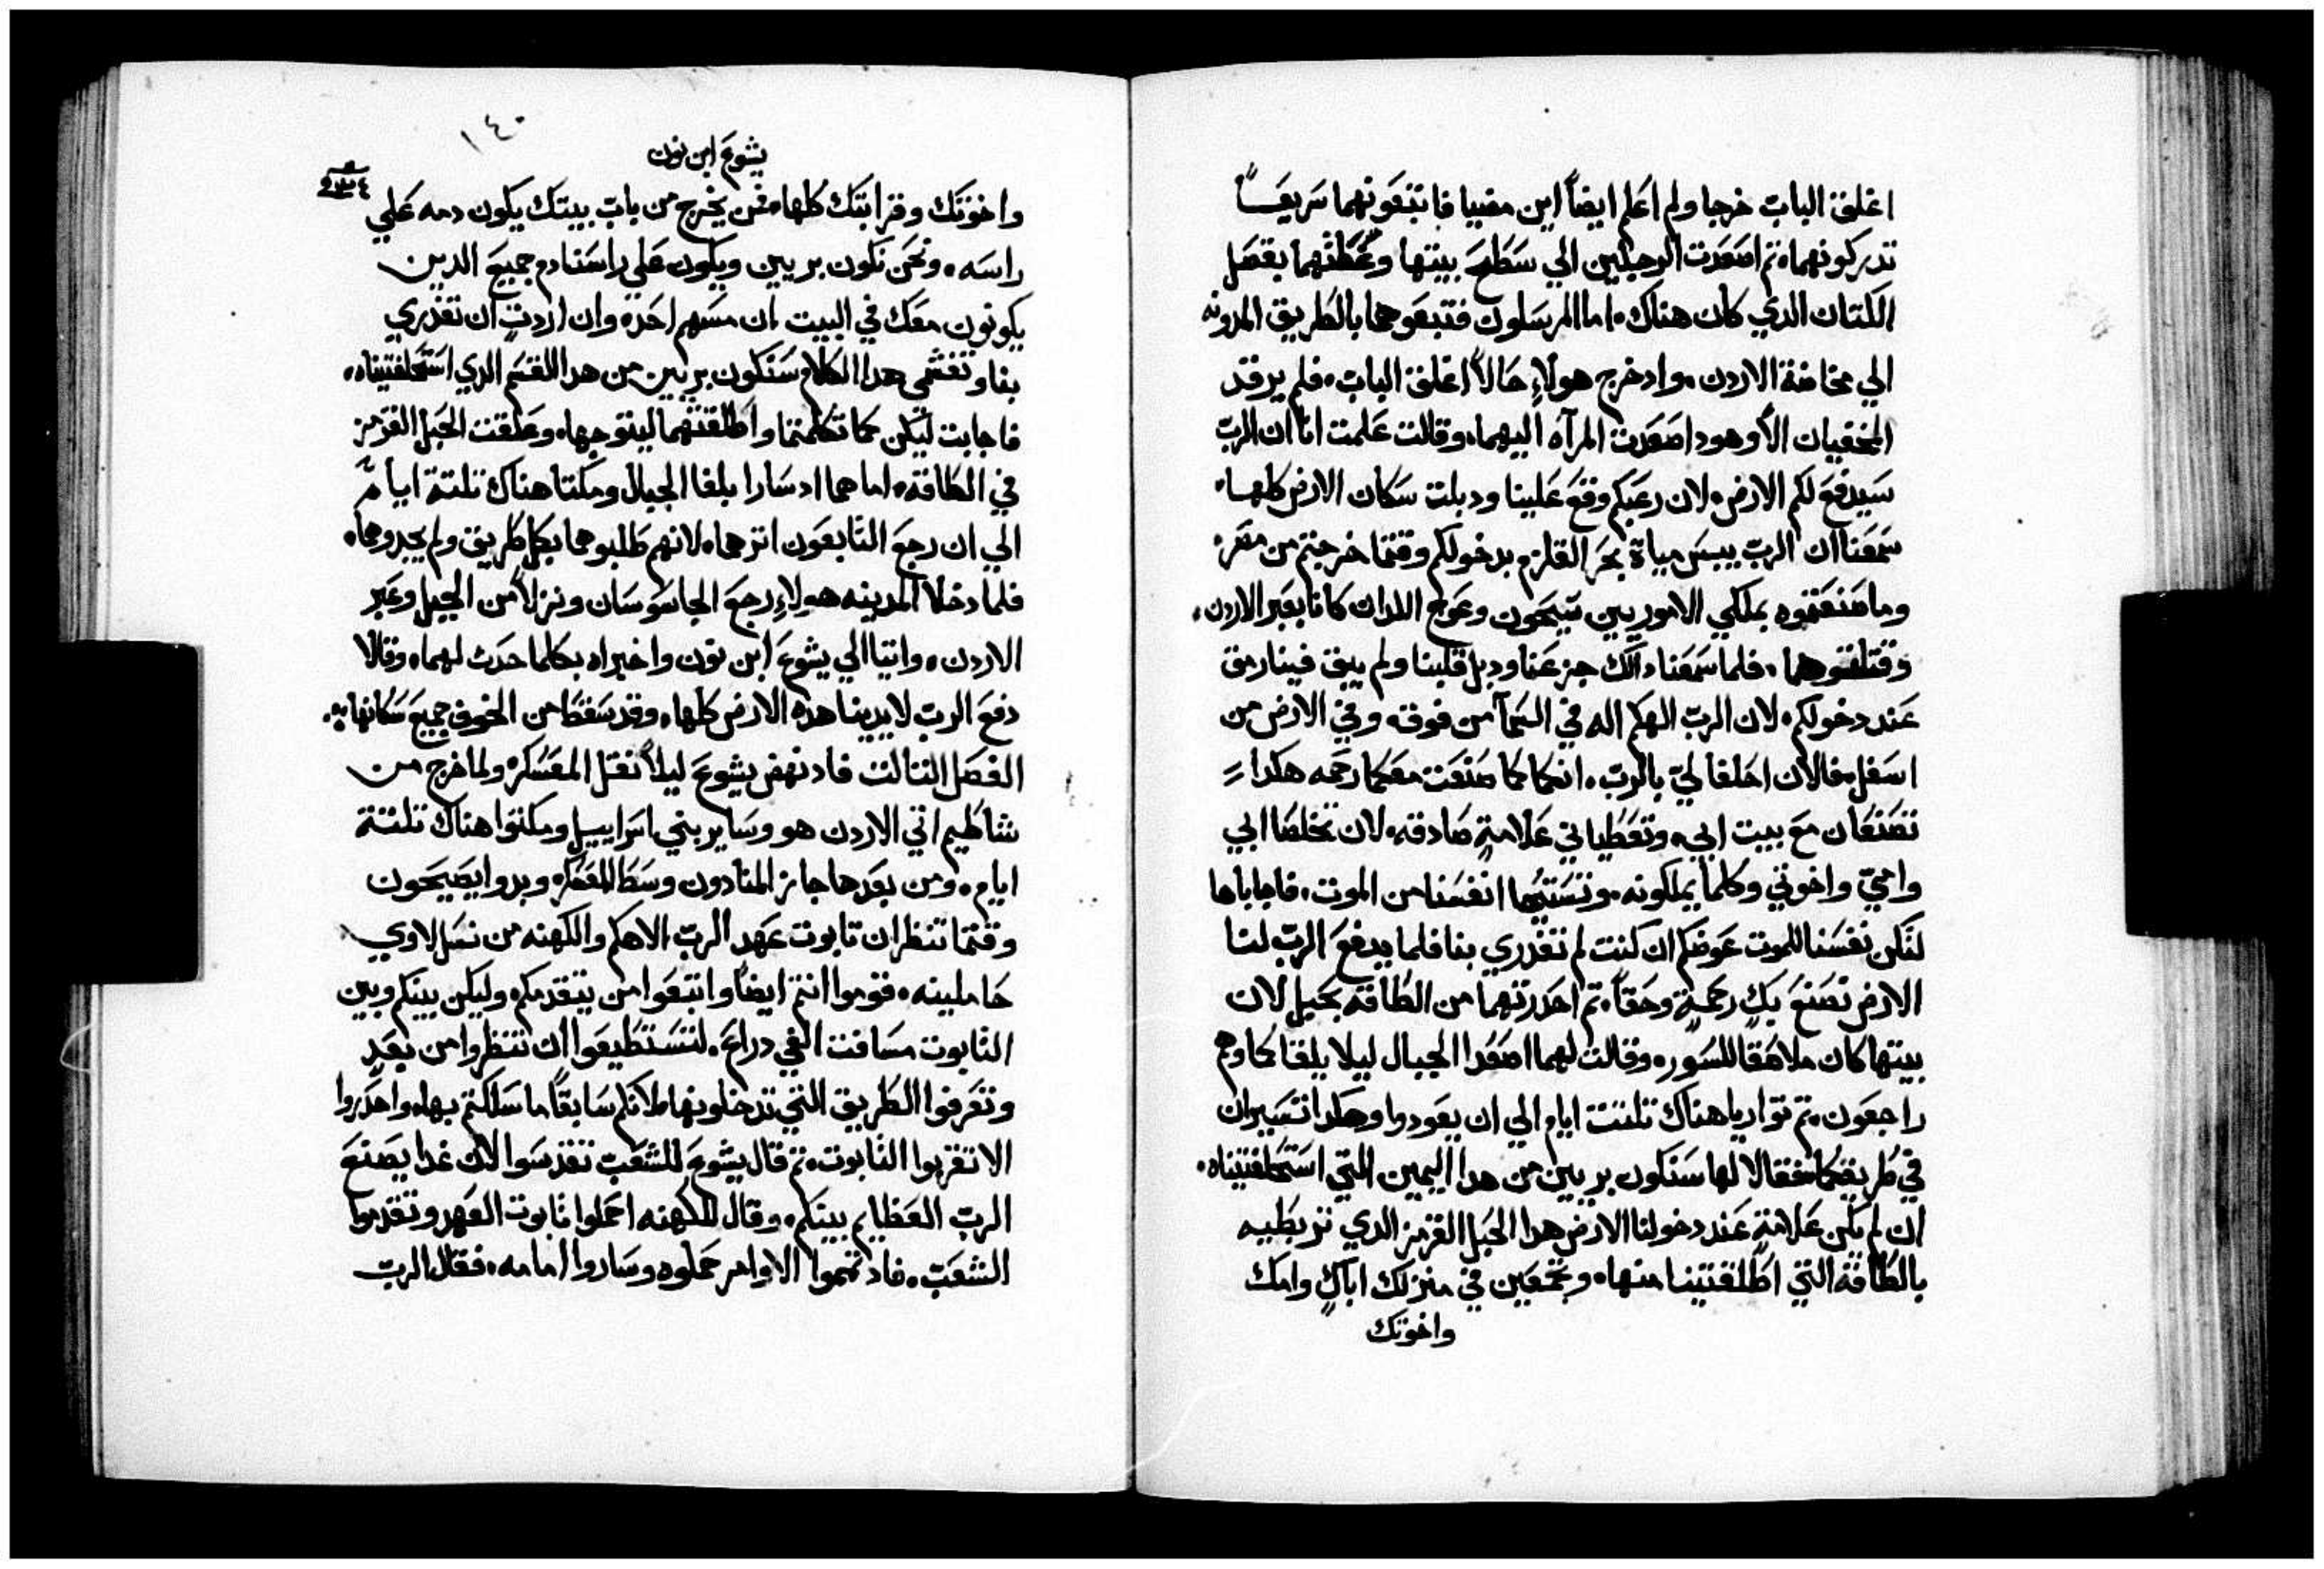 اغلق الباب خرجا ولم اعلم ايضاً اين مضيا فاتبعونهما سريعاً
تدركونهما، تم اصعدت الرجلين الي سطح بيتها وغطتهما بقصل
الكتان الدي كان هناك، اما المرسلون فتبعوهما بالطريق المدونه
الي مخاضة الاردن، واد خرج هولاءِ حالاً اغلق الباب، فلم يرقد
المخفيان الا وهود اصعدت المرآه اليهما، وقالت علمت انا ان الرب
سيدفع لكم الارض، لان رعبكم وقع علينا ودبلت سكان الارض كلها،
سمعنا ان الرب يبس مياة بحر القلزم بدخولكم وقتما خرجتم من مصر،
وما صنعتموه بملكي الاموريين سيحون وعوج اللدان كانا بعبر الاردن،
وقتلتموهما، فلما سمعنا دالك جزعنا ودبل قلبنا ولم يبق فينا رمق
عند دخولكم، لان الرب الهكم اله في السمآ من فوق، وفي الارض من
اسفل، فالان احلفا لي بالرب، انكما كما صنعت معكما رحمه هكدا
تصنعان مع بيت ابي، وتعطياني علامةٍ صادقه، لان تخلصا ابي
وامي واخوتي وكلما يملكونه، وتنستجيا انفسنا من الموت، فاجاباها
لتكن نفسنا للموت عوضكم ان كنت لم تغدري بنا فلما يدفع الرب لنا
الارض نصنع بكِ رحمةٍ وحقاً، تم احدرتهما من الطاقة بحبل لان
بيتها كان ملاصقا للسور، وقالت لهما اصعدا الجبال ليلا يلقاكما وهم
راجعون، تم تواريا هناك تلتت ايام الي ان يعودوا وهكدا تسيران
في طريقكما، فقالا لها سنكون بريين من هدا اليمين التي استحلفتيناه،
ان لم تكن علامةٍ عند دخولنا الارض هدا الحبل القرمز الدي تربطيه
بالطاقة التي اطلقتينا منها، وتجمعين في منزلك اباكِ وامك
واخوتك
١٤٠
يشوع ابن نون
واخوتك وقرابتك كلها، فمن يخرج من باب بيتك يكون دمه علي
راسه، ونحن نكون بريين ويكون علي راسنا دم جميع الدين
يكونون معك في البيت ان مسهم احد، وان اردتِ ان تغدري
بنا وتفشي هدا الكلام سنكون بريين من هدا القسم الدي استحلفتيناه،
فاجابت ليكن كما تكلمتما واطلقتهما ليتوجها، وعلقت الحبل القرمز
في الطاقة، اما هما اد سارا بلغا الجبال ومكتا هناك تلتة ايام
الي ان رجع التابعون اترهما، لانهم طلبوهما بكل طريق ولم يجدوهما،
فلما دخلا المدينه هولاءِ رجع الجاسوسان ونزلا من الجبل وعبر
الاردن، واتيا الي يشوع ابن نون واخبراه بكلما حدت لهما، وقالا
دفع الرب لايدينا هده الارض كلها، وقد سقط من الخوف جميع سكانها،
الفصل التالت فاد نهض يشوع ليلاً نقل المعسكر، ولما خرج من
شاطيم اتي الاردن هو وساير بني اسراييل ومكتوا هناك تلتة
ايام، ومن بعدها جاز المنادون وسط المعسكر، وبدوا يصيحون
وقتما تنظران تابوت عهد الرب الاهكم والكهنه من نسل لاوي
حاملينه، قوموا انتم ايضاً واتبعوا من يتقدمكم، وليكن بينكم وبين
التابوت مسافت الفي دراع، لتستطيعوا ان تنظروا من بعدٍ
وتعرفوا الطريق التي تدخلونها، لانكم سابقاً ما سلكتم بها، واحدروا
الا تقربوا التابوت، تم قال يشوع للشعب تقدسوا لان غدا يصنع
الرب العظايم بينكم، وقال للكهنه احملوا تابوت العهد وتقدموا
الشعب، فاد تمموا الاوامر حملوه وساروا امامه، فقال الرب